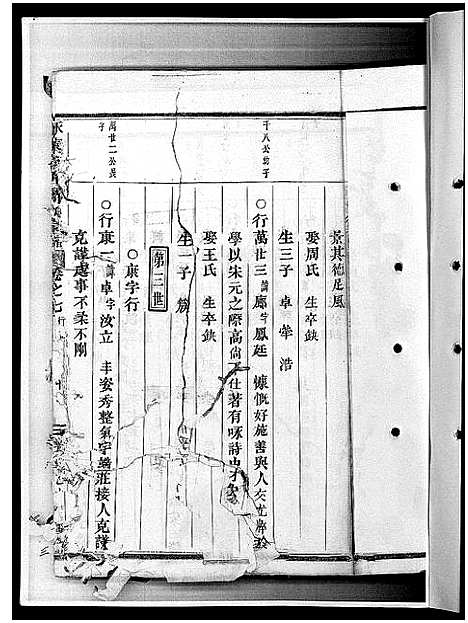 景其德足風
娶周氏 生卒缺
生三子 卓 犖 浩
千八公幼子
○行萬世三 諱廊 字鳳廷 慷慨好施善與人交尤
學以宋元之際高尚不仕著有咏詩
娶王氏 生卒缺
生一子
第三世
○康字行
萬世二公長子
○行康一 諱卓 字汝立 丰姿秀整氣宇端莊接人克謹
克謹處事不柔不剛
卷之七 行
三